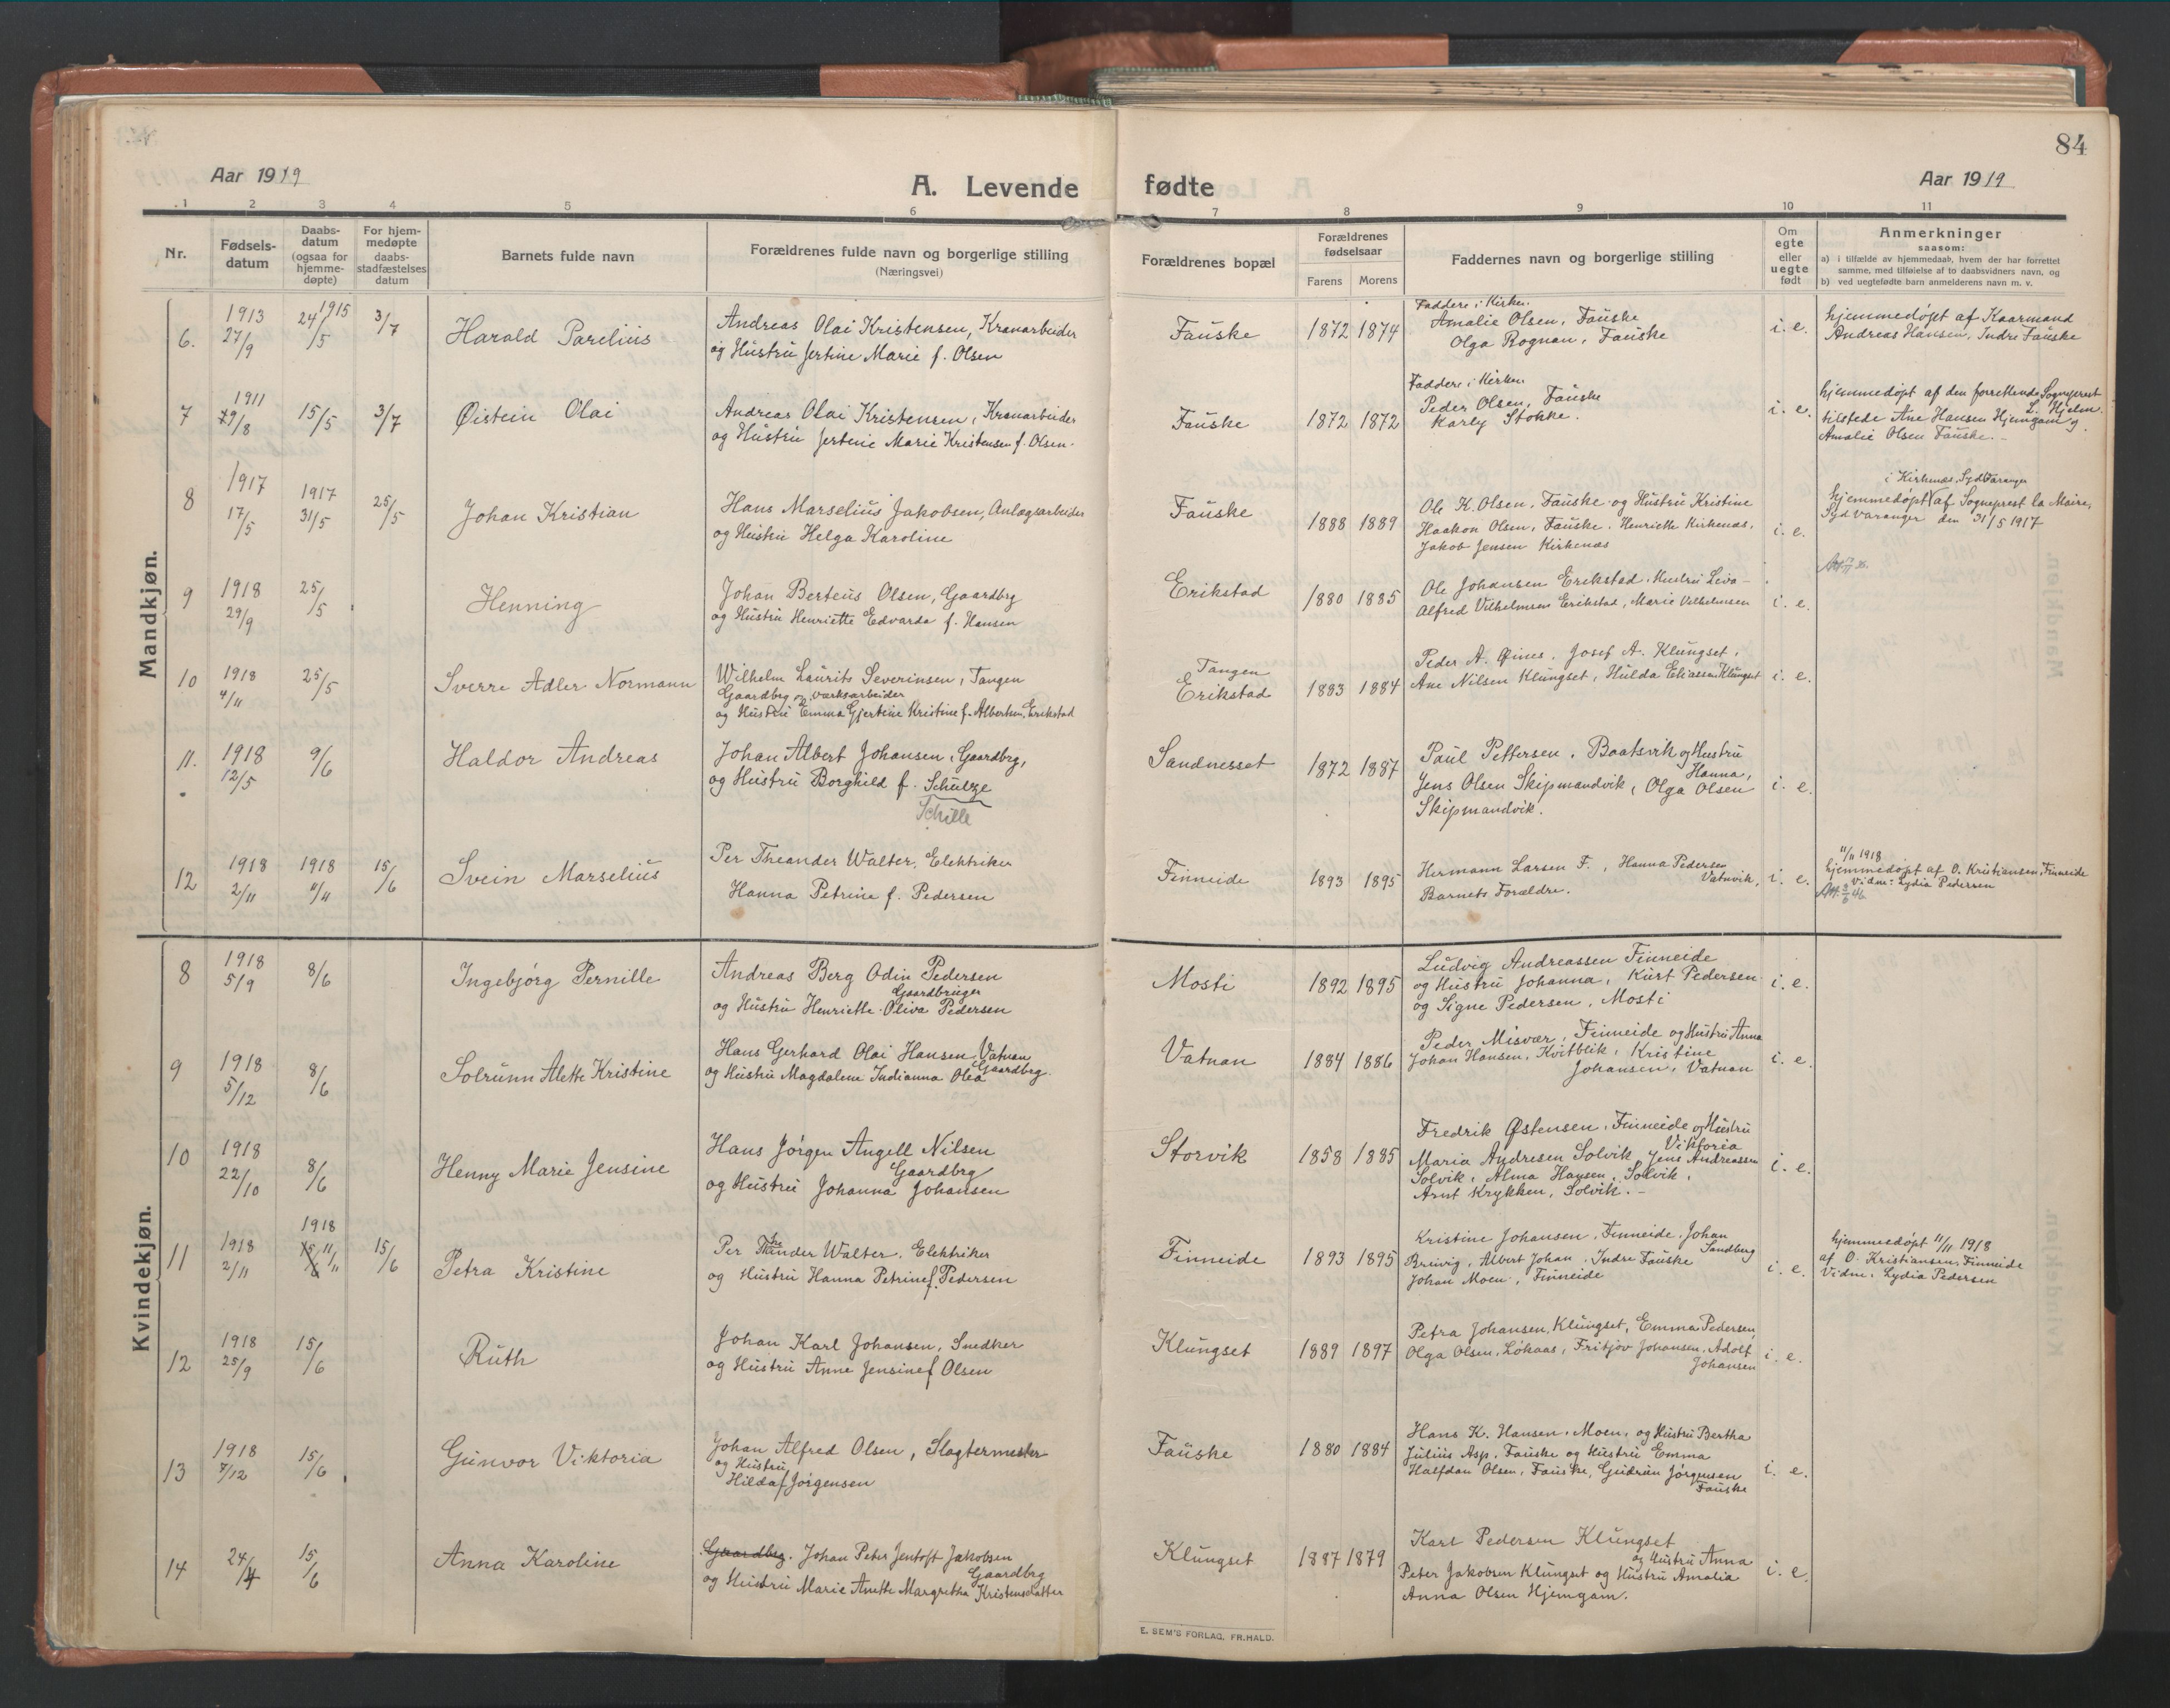 84
Aar 1919
A. Levende fødte
Aar 1919
1 2 3 4 5 6 7 8 9 10 11
Nr.
Fødsels-
datum
Daabs-
datum
(ogsaa for
hjemme-
døpte)
For hjem-
medøpte
daabs-
stadfæstelses
datum
Barnets fulde navn
Forældrenes fulde navn og borgerlige stilling
(Næringsvei)
Forældrenes bopæl
Forældrenes
fødselsaar
Farens Morens
Faddernes navn og borgerlige stilling
Om
egte
eller
uegte
født
Anmerkninger
saasom:
a) i tilfælde av hjemmedaab, hvem der har forrettet
samme, med tilføielse af to daabsvidners navn, og
b) ved uegtefødte barn anmelderens navn m. v.
Mandkjøn.
6. 1913 27/9 1915 24/5 3/7 Harald Parelius
Andreas Olai Kristensen, Kranarbeider
og Hustru Jertine Marie f. Olsen
Fauske 1872 1874
Faddere i Kirken.
Amalie Olsen, Fauske
Olga Rognan, Fauske
i. e.
hjemmedøpt af Kaarmand
Andreas Hansen, Indre Fauske
7 1911 29/8 15/5 3/7 Øistein Olai
Andreas Olai Kristensen, Kranarbeider
og Hustru Jertine Marie Kristensen f. Olsen.
Fauske 1872 1872
Faddere i Kirken
Peder Olsen, Fauske
Karly Stokke.
i. e.
hjemmedøpt af den forrettende Sogneprest
L. Hjelm.
tilstede Ane Hansen Hjemgam og
Amalie Olsen Fauske.
8 1917 17/5 1917 31/5 25/5 Johan Kristian
Hans Marselius Jakobsen, Anlægsarbeider
og Hustru Helga Karoline
Fauske 1888 1889
Ole K. Olsen, Fauske og Hustru Kristine
Haakon Olsen, Fauske, Henriette Kirkenæs,
Jakob Jensen Kirkenæs
i. e.
i Kirkenæs, Sydvaranger
hjemmedøpt af Sogneprest la Maire,
Sydvaranger den 31/5 1917
9 1918 29/9 25/5 Henning
Johan Berteus Olsen, Gaardbrg
og Hustru Henriette Edvarda f. Hansen
Erikstad 1880 1885
Ole Johansen Erikstad, Hustru Liva
Alfred Vilhelmsen Erikstad, Marie Vilhelmsen
i. e.
10 1918 4/11 25/5 Sverre Adler Normann
Wilhelm Laurits Severinsen, Tangen
Gaardbrg og værksarbeider
og Hustru Emma Gjertine Kristine f. Albertsen, Erikstad
Tangen
Erikstad 1883 1884
Peder A. Øines, Josef A. Klungset,
Ane Nilsen Klungset, Hulda Eliassen Klungset
i. e.
11. 1918 12/5 9/6 Haldor Andreas
Johan Albert Johansen, Gaardbrg,
og Hustru Borghild f. Schulze
Schille
Sandnesset 1872 1887
Paul Pettersen, Baatsvik og Hustru
Hanna,
Jens Olsen Skipmandvik, Olga Olsen
Skipmandvik.
i. e.
12 1918 2/11 1918 11/11 15/6 Svein Marselius
Per Theander Walter, Elektriker
Hanna Petrine f. Pedersen
Finneide 1893 1895
Hermann Larsen F., Hanna Pedersen
Vatnvik,
Barnets Forældre.
i. e.
11/11 1918
hjemmedøpt af O. Kristiansen, Finneide
Vidne: Lydia Pedersen
Kvindekjøn.
8 1918 5/9 8/6 Ingebjørg Pernille
Andreas Berg Odin Pedersen
Gaardbruger
og Hustru Henriette Oliva Pedersen
Mosti 1892 1895
Ludvig Andreassen Finneide
og Hustru Johanna, Kurt Pedersen
og Signe Pedersen, Mosti
i. e.
9 1918 5/12 8/6 Solrunn Alette Kristine
Hans Gerhard Olai Hansen, Vatnan
Gaardbrg.
og Hustru Magdalene Indianna Olea
Vatnan 1884 1886
Peder Misvær, Finneide og Hustru Anna
Johan Hansen, Kvitblik, Kristine
Johansen, Vatnan
i. e.
10 1918 22/10 8/6 Henny Marie Jensine
Hans Jørgen Angell Nilsen
Gaardbrg
og Hustru Johanna Johansen
Storvik 1858 1885
Fredrik Østensen, Finneide og Hustru
Viktoria
Maria Andresen Solvik, Jens Andreassen
Solvik, Alma Hansen, Solvik,
Arnt Krykken, Solvik.
i. e.
11 1918 2/11 1918 15/6 11/11 15/6 Petra Kristine
Per Theander Walter, Elektriker
og Hustru Hanna Petrine f. Pedersen
Finneide 1893 1895
Kristine Johansen, Finneide, Johan
Sandberg
Breivig, Albert Johan, Indre Fauske
Johan Moen, Finneide
i. e.
hjemmedøpt 11/11 1918
af O. Kristiansen, Finneide
Vidne: Lydia Pedersen
12 1918 25/9 15/6 Ruth
Johan Karl Johansen, Snedker
og Hustru Anne Jensine f Olsen
Klungset 1889 1897
Petra Johansen, Klungset, Emma Pedersen,
Olga Olsen, Løkaas, Fritjov Johansen, Adolf
Johansen
i. e.
13 1918 7/12 15/6 Gunvor Viktoria
Johan Alfred Olsen, Slagtermester
og Hustru
Hilda f Jørgensen
Fauske 1880 1884
Hans K. Hansen, Moen, og Hustru Bertha
Julius Asp, Fauske og Hustru Emma
Halfdan Olsen, Fauske, Gudrun Jørgensen
Fauske
i. e.
14 24/4 15/6 Anna Karoline
Gaardbrg. Johan Peter Jentoft Jakobsen
Gaardbrg
og Hustru Marie Anette Margretha Kristensdatter
Klungset 1887 1879
Karl Pedersen Klungset
og Hustru Anna
Peter Jakobsen Klungset og Hustru Amalia
Anna Olsen Hjemgam.
i. e.
E. SEM'S FORLAG, FR.HALD.